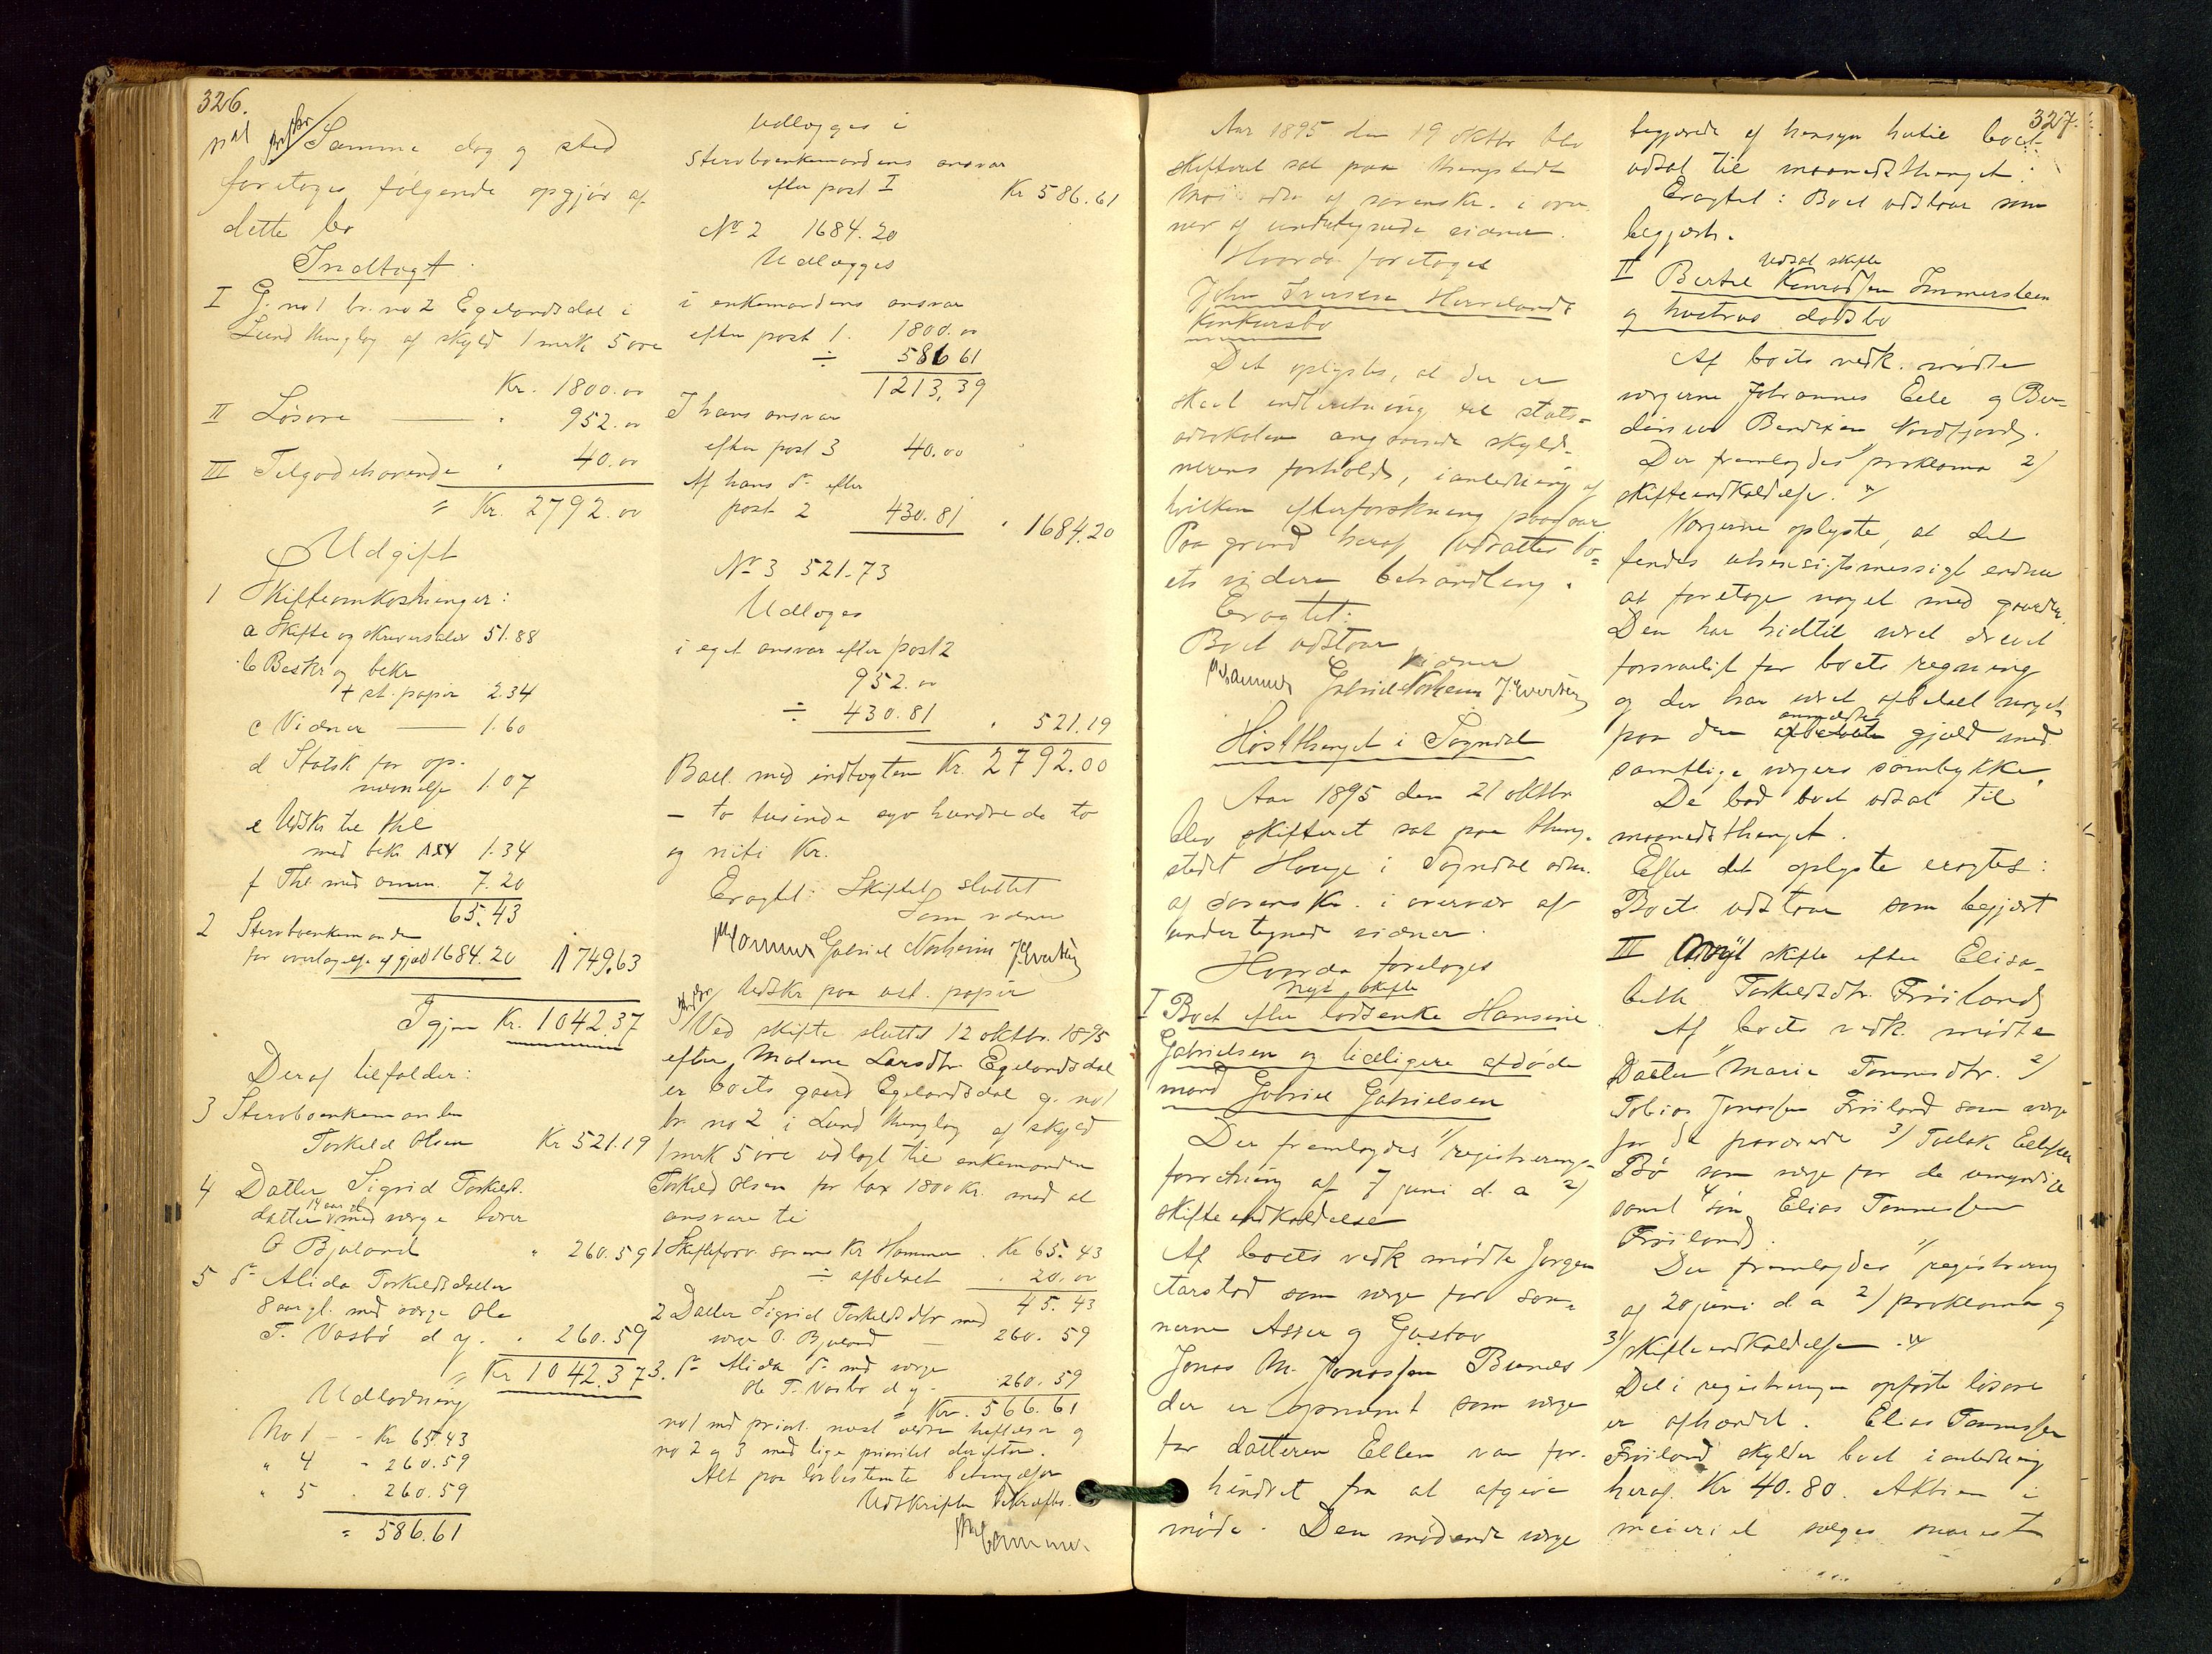 326.
Samme dag og sted
foretoges følgende opgjør af
dette bo
Indtægt
I G. no 1 br. no 2 Egelandsdal i
Lund thinglag af skyld 1 mrk 5 øre
Kr. 1800.00
II Løsøre — " 952.00
III Tilgodehavende " 40.00
= Kr. 2792.00
Udgift
1 Skifteomkostninger:
a Skifte og skriversalær 51.88
b Beskr og bekr
+ st. papir 2.34
c Vidner — 1.60
d Statsk for op-
nævnelse 1.07
e Udskr til thl
med bekr 1.34
f Thl med anm. 7.20
65.43
2 Stervboenkemanden
for overtagelse af gjæld 1684.20 1749.63
Igjen Kr. 1042.37
Deraf tilfalder:
3 Stervboenkemanden
Torkild Olsen Kr 521.19
4 Datter Sigrid Torkilds-
14 aar gl.
datter med værge lærer
O Bjuland " 260.59
5 do Alida Torkildsdatter
8 aar gl. med værge Ole
T. Vasbø d y. " 260.59
= Kr 1042.37
Udlodning
No 1 - - Kr 65.43
" 4 - 260.59
" 5 . 260.59
= 586.61
Udlægges i
Stervboenkemandens ansvar
efter post I
Kr 586.61
No 2 1684.20
Udlægges
i enkemandens ansvar
efter post 1. 1800.00
÷ 586 61
1213,39
I hans ansvar
efter post 3 40.00
Af hans do efter
post 2 430.81 " 1684.20
No 3 521.73
Udlæges
i eget ansvar efter post 2
952.00
÷ 430.81 " 521.19
Bal. med indtægten Kr. 2792.00
- to tusinde syv hundrede to
og niti Kr.
Eragtet: Skiftet sluttet
Som vidner
Hammer Gabriel Norheim J. Evertsen
Udskr paa ust. papir
Ved skifte sluttet 12 oktbr. 1895
efter Malene Larsdtr Egelandsdal
er boets gaard Egelandsdal g. no 1
br. no 2 i Lund thinglag af skyld
1 mrk 5 øre udlagt til enkemanden
Torkild Olsen for tax 1800 kr. med at
ansvare til
1 Skifteforv. sorenskr Hammer . Kr 65.43
÷ afbetalt . 20.00
45.43
2 Datter Sigrid Torkildsdtr med
værge O. Bjuland — 260.59
3. do Alida do med værge
Ole T. Vasbø d y - 260.59
= Kr. 566.61
no 1 med priort. næst ældre heftelser og
no 2 og 3 med lige prioritet derefter.
Alt paa lovbestemte betingelser
Udskriften bekræftes.
Hammer
327.
Aar 1895 den 19 oktbr blev
skifteret sat paa thingstedet
Moi adm af sorenskr. i over-
vær af undertegnede vidner.
Hvorda foretoges
John Iversen Hovelands
konkursbo
Det oplystes, at der er
skeet indberetning til stats-
advokaten angaaende skyld-
nerens forhold, i anledning af
hvilken efterforskning paagaar
Paa grund heraf udsattes bo-
ets videre behandling.
Eragtet:
Boet udstaar
Vidner
Hammer Gabriel Norheim J. Evertsen
Høstthinget i Sogndal
Aar 1895 den 21 oktbr
blev skifteret sat paa thing-
stedet Hauge i Sogndal adm.
af sorenskr. i overvær af
undertegnede vidner.
Hvorda foretoges
nyt skifte
I Boet efter lodsenke Hansine
Gabrielsen og tidligere afdøde
mand Gabriel Gabrielsen
Der fremlagdes 1/ registrerings-
forretning af 7 juni d. a 2/
skifteindkaldelse
Af boets vedk mødte Jørgen
Aarstad som værge for søn-
nerne Asser og Gustav
Jonas M. Jonassen Bunes
der er opnævnt som værge
for datteren Ellen var for-
hindret fra at afgive
møde. Den mødende værge
begjærede af hensyn hertil boet
udsat til maanedsthinget.
Eragtet: Boet udstaar som
begjært.
Udsat skifte
II Bertel Konradsen Immersteen
og hustrus dødsbo
Af boets vedk. mødte
værgerne Johannes Eele og Ber-
dinius Bendixen Nordfjord.
Der fremlagdes 1/ proklama 2/
skifteindkaldelse.
Værgerne oplyste, at det
fandtes uhensigtsmessigt endnu
at foretage noget med gaarden.
Den har hidtil været drevet
forsvarligt for boets regning
og der har været afbetalt noget
anmeldte
paa den afbetalte gjæld med
samtlige værgers samtykke.
De bad boet udsat til
maanedsthinget.
Efter det oplyste eragtes:
Boet udstaar som begjært
III Nyt skifte efter Elisa-
beth Torkildsdtr. Frøiland
Af boets vedk. mødte
1/ Datter Marie Tønnesdtr. 2/
Tobias Jonassen Frøiland som værge
for de fraværende 3/ Tollak Ellefsen
Bø som værge for de umyndige
samt 4 søn Elias Tønnessen
Frøiland.
Der fremlagdes 1/ registrering
af 20 juni d. a 2/ proklama og
3/ skifteindkaldelse
De i registreringen opførte løsøre
er afhændet. Elias Tønnessen
Frøiland skylder boet i anledning
heraf Kr 40.80. Aktien i
meieriet sælges snarest